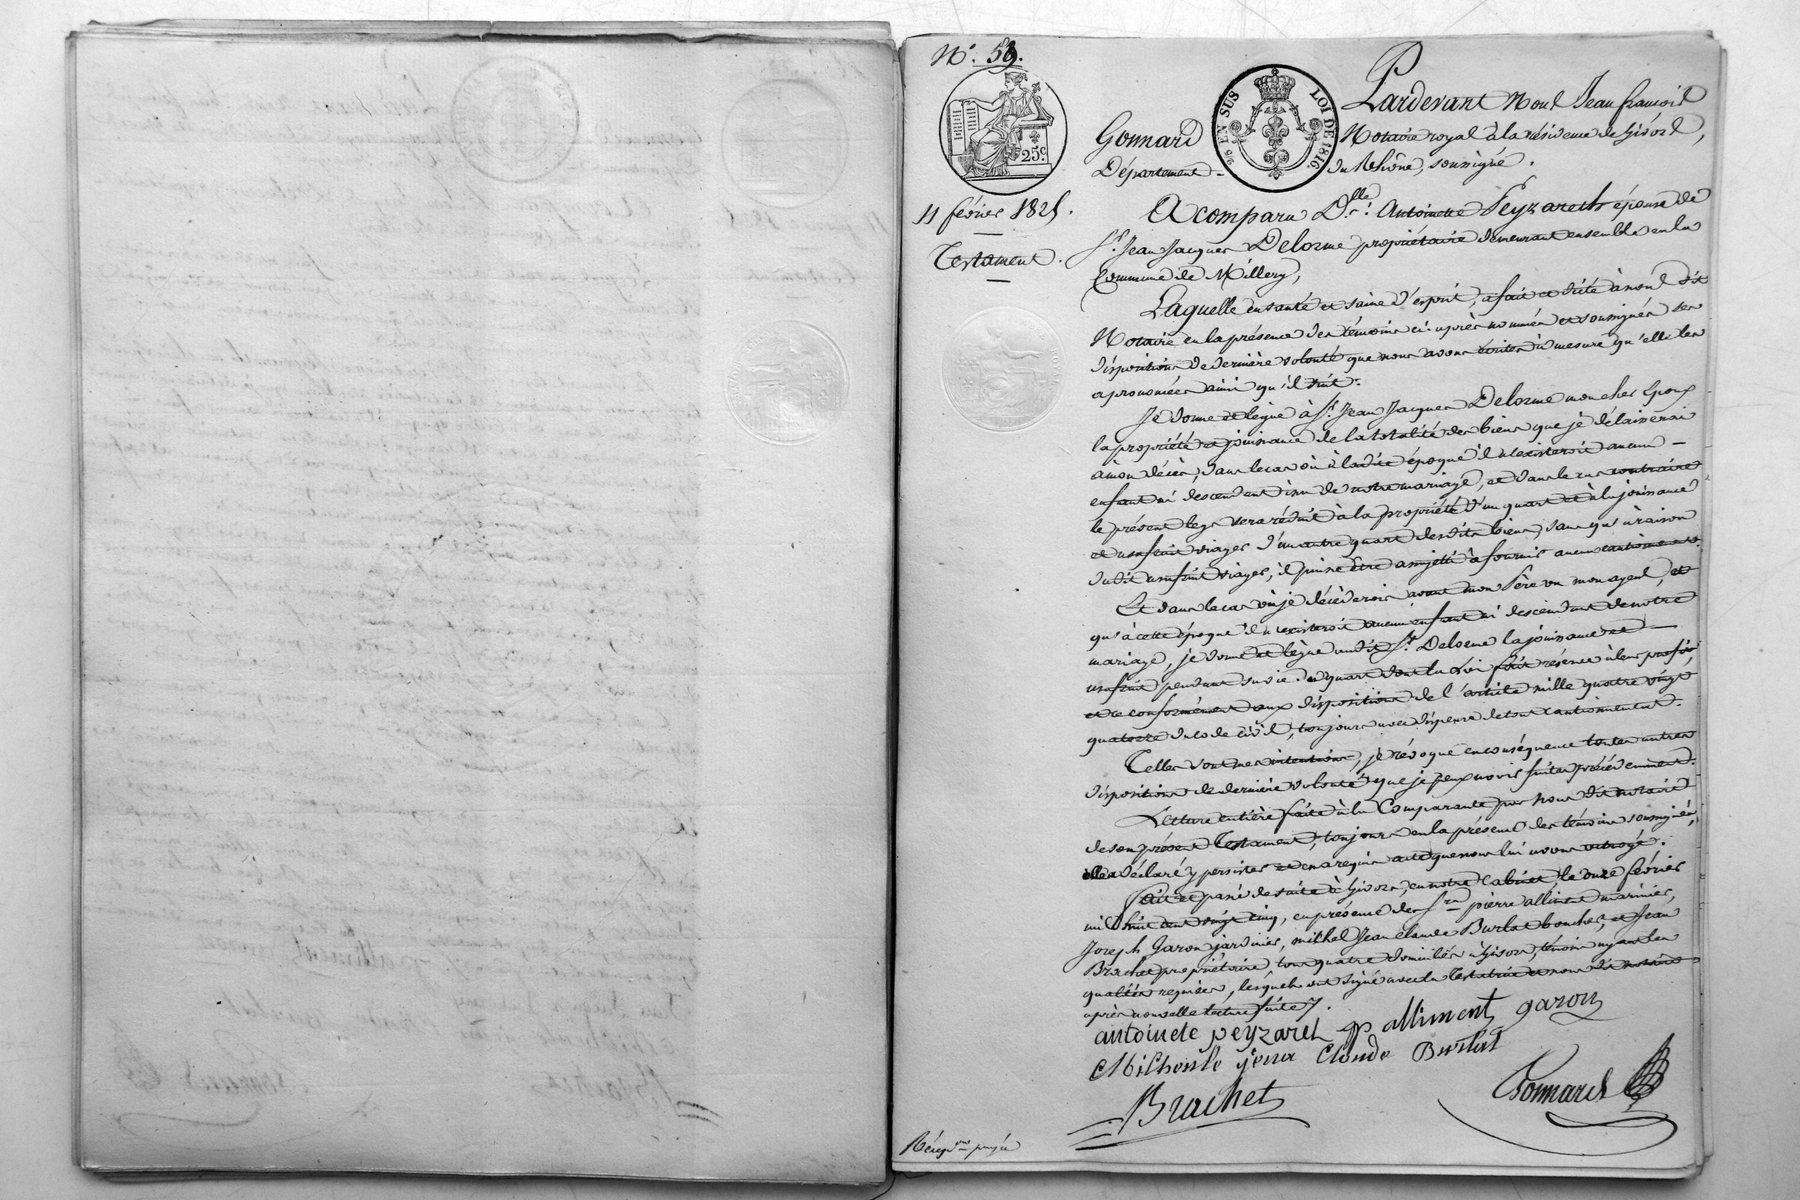 N.° 59.
25.c
5/10 EN SUS LOI DE 1816.
11 février 1825.
Testament.
Pardevant Nous Jean françois
Gonnard Notaire royal à la résidence de Givors,
Département du Rhône, soussigné.
A comparu D.lle Antoinette Peyzareth épouse de
Sr. Jean Jacques Delorme propriétaire demeurant ensemble en la
Commune de Millery,
Laquelle en santé et saine d'esprit, a fait et dicté à nous dit
Notaire en la présence des témoins ci après nommés et soussignés ses
dispositions de dernière volonté que nous avons écrites à mesure qu'elle les
a prononcées ainsi qu'il suit.
Je donne et lègue à Sr. Jean Jacques Delorme mon cher Epoux
la propriété et jouissance de la totalité des biens que je délaisserai
à mon décès, dans le cas où à ladite époque il n'existeroit aucun
enfant ni descendant issu de notre mariage, et dans le cas contraire
le présent legs sera réduit à la propriété d'un quart et à la jouissance
et usufruit viager d'un autre quart desdits biens, sans qu'à raison
dudit usufruit viager, il puisse être assujetti à fournir aucun cautionnement.
Et dans le cas où je décèderois avant mon Père ou mon ayeul, et
qu'à cette époque il n'existeroit aucun enfant ni descendant de notre
mariage, je donne et lègue audit Sr. Delorme la jouissance et
usufruit pendant sa vie du quart dont la Loi fait réserve à leur profit,
et ce conformément aux dispositions de l'article mille quatre vingt
quatorze du Code Civil, toujours avec dispense de tout cautionnement.
Telles sont mes intentions, je révoque en conséquence toutes autres
dispositions de dernière volonté que je peux avoir faites précédemment.
Lecture entière faite à la Comparante par nous dit notaire
de son présent Testament, toujours en la présence des témoins soussignés,
elle a déclaré y persister et en a requis acte que nous lui avons octroyé.
Fait et passé de suite à Givors, en notre Cabinet le onze février
mil huit cent vingt cinq, en présence de Srs. pierre alliment marinier,
Joseph Garon jardinier, michel Jean claude Burlat boucher, et Jean
Brachet propriétaire, tous quatre domiciliés à Givors, témoins ayant les
qualités requises, lesquels ont signé avec la Testatrice et nous dit notaire
après nouvelle lecture faite.
antoinete peyzaret pp alliment garon
Jean Claude Burlat
Brachet Gonnard